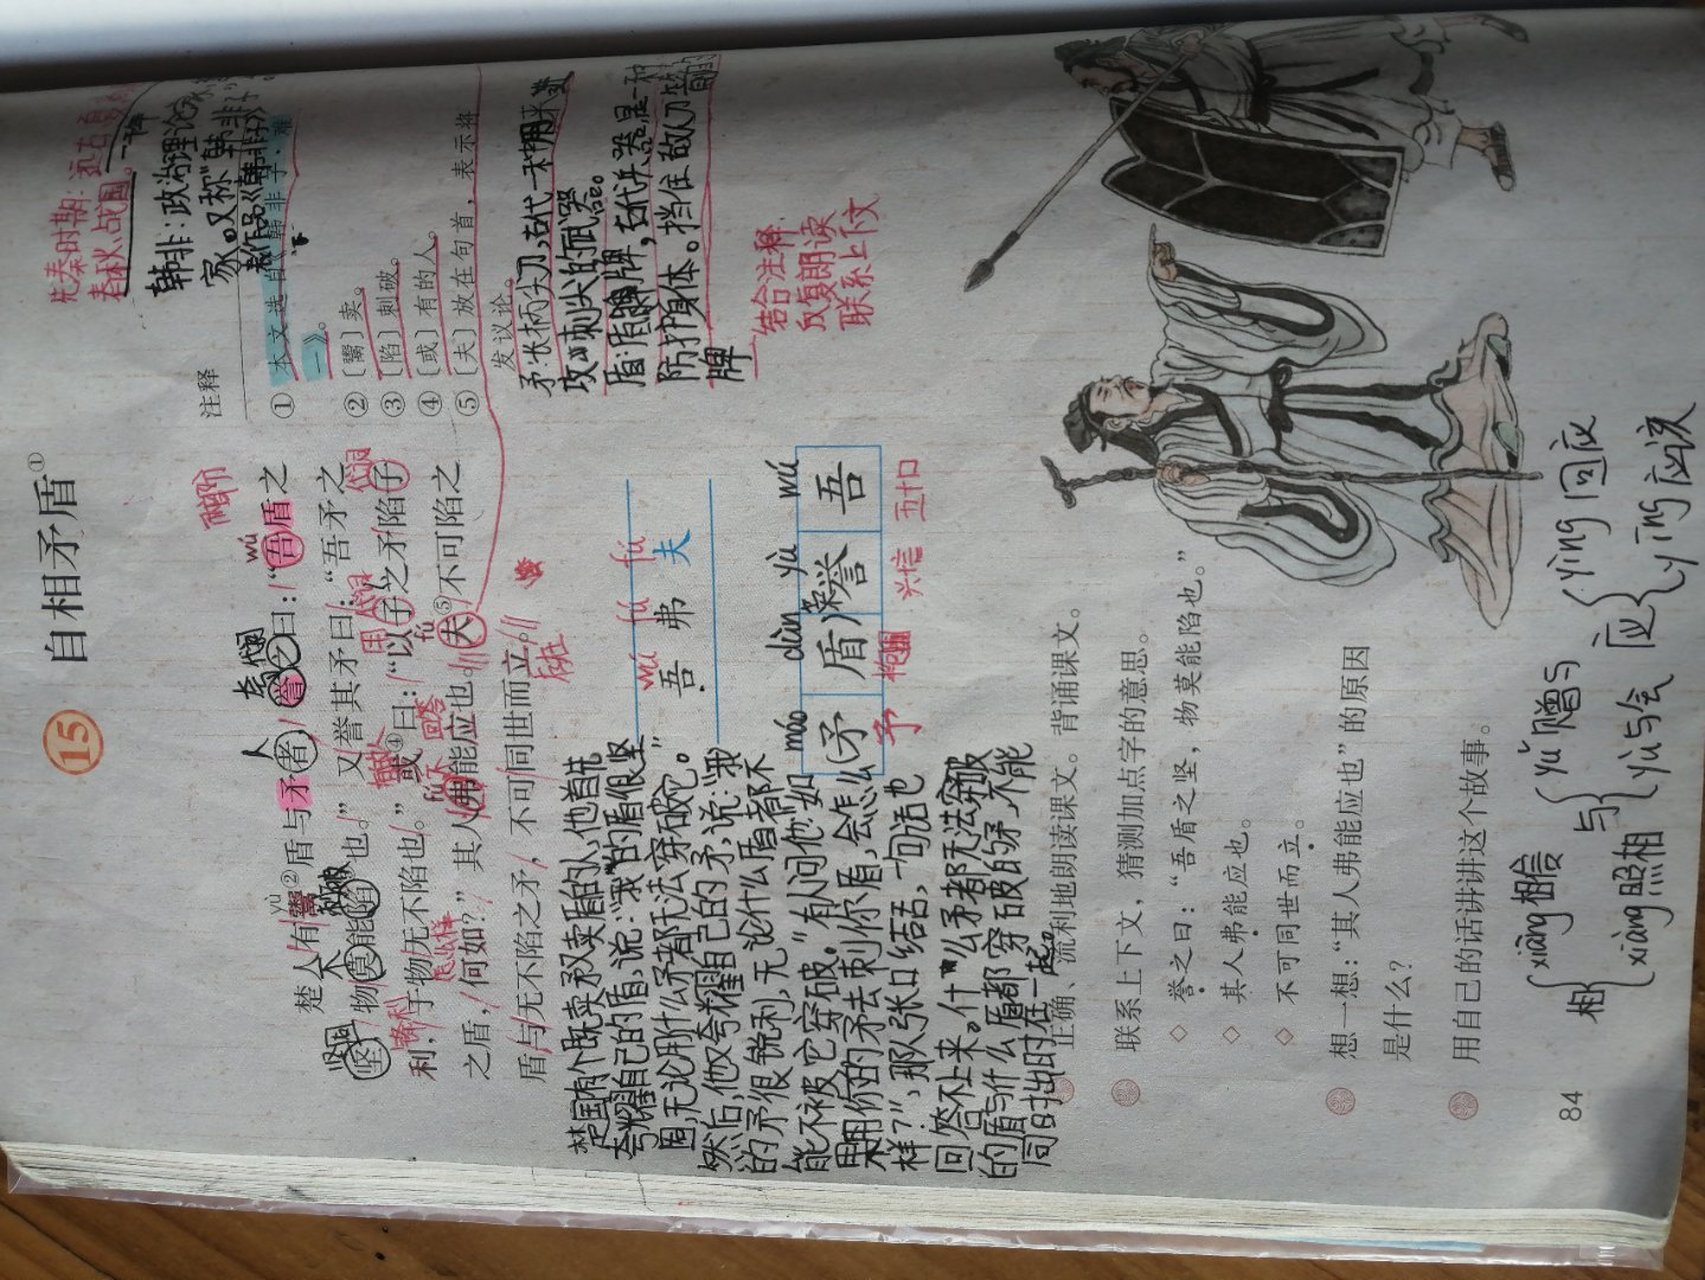 15
自相矛盾①
先秦时期:
春秋战国。
韩非:政治理论
家。又称"韩非子"
本文选自《韩非子·难
一》。
注释
①
②〔鬻〕卖。
③〔陷〕刺破。
④〔或〕有的人。
⑤〔夫〕放在句首,表示将
发议论。
人
wú
yù
楚人有鬻②盾与矛者,誉之曰:“吾盾之
坚
不
坚,物莫能陷③也。”又誉其矛曰:“吾矛之
锋利
利,于物无不陷也。”或④曰:“以子之矛陷子
怎么样
回答
fú
fú
之盾,何如?”其人弗能应也。夫⑤不可陷之
盾与无不陷之矛,不可同世而立。
矛:长柄尖刀,古代一种用来
攻刺尖的武器。
盾:盾牌,古代兵器,是一种
防护身体。挡住敌人刀箭的
牌
结合注释
反复朗读
联系上下文
wú fú fú
吾 弗 夫
máo dùn yù wú
矛盾誉吾
予
兴言
五口
楚国有个既卖矛又卖盾的人,他首先
夸耀自己的盾,说:“我的盾很坚
固,无论用什么矛都无法穿破它。”
然后,他又夸耀自己的矛,说:“我
的矛很锐利,无论什么盾都不
能不被它穿破。”有人问他:“如
果用你的矛去刺你的盾,会怎么
样?”,那人张口结舌,一句话也
回答不上来。什么矛都无法穿破
的盾与什么盾都穿破的矛,不能
同时出现在一起
正确、流利地朗读课文。背诵课文。
联系上下文,猜测加点字的意思。
◇ 誉之曰:“吾盾之坚,物莫能陷也。”
◇ 其人弗能应也。
◇ 不可同世而立。
想一想:“其人弗能应也”的原因
是什么?
用自己的话讲讲这个故事。
84
相 xiāng 相信
xiàng 照相
与 yǔ 赠与
yù 与会
应 yìng 回应
yīng 应该